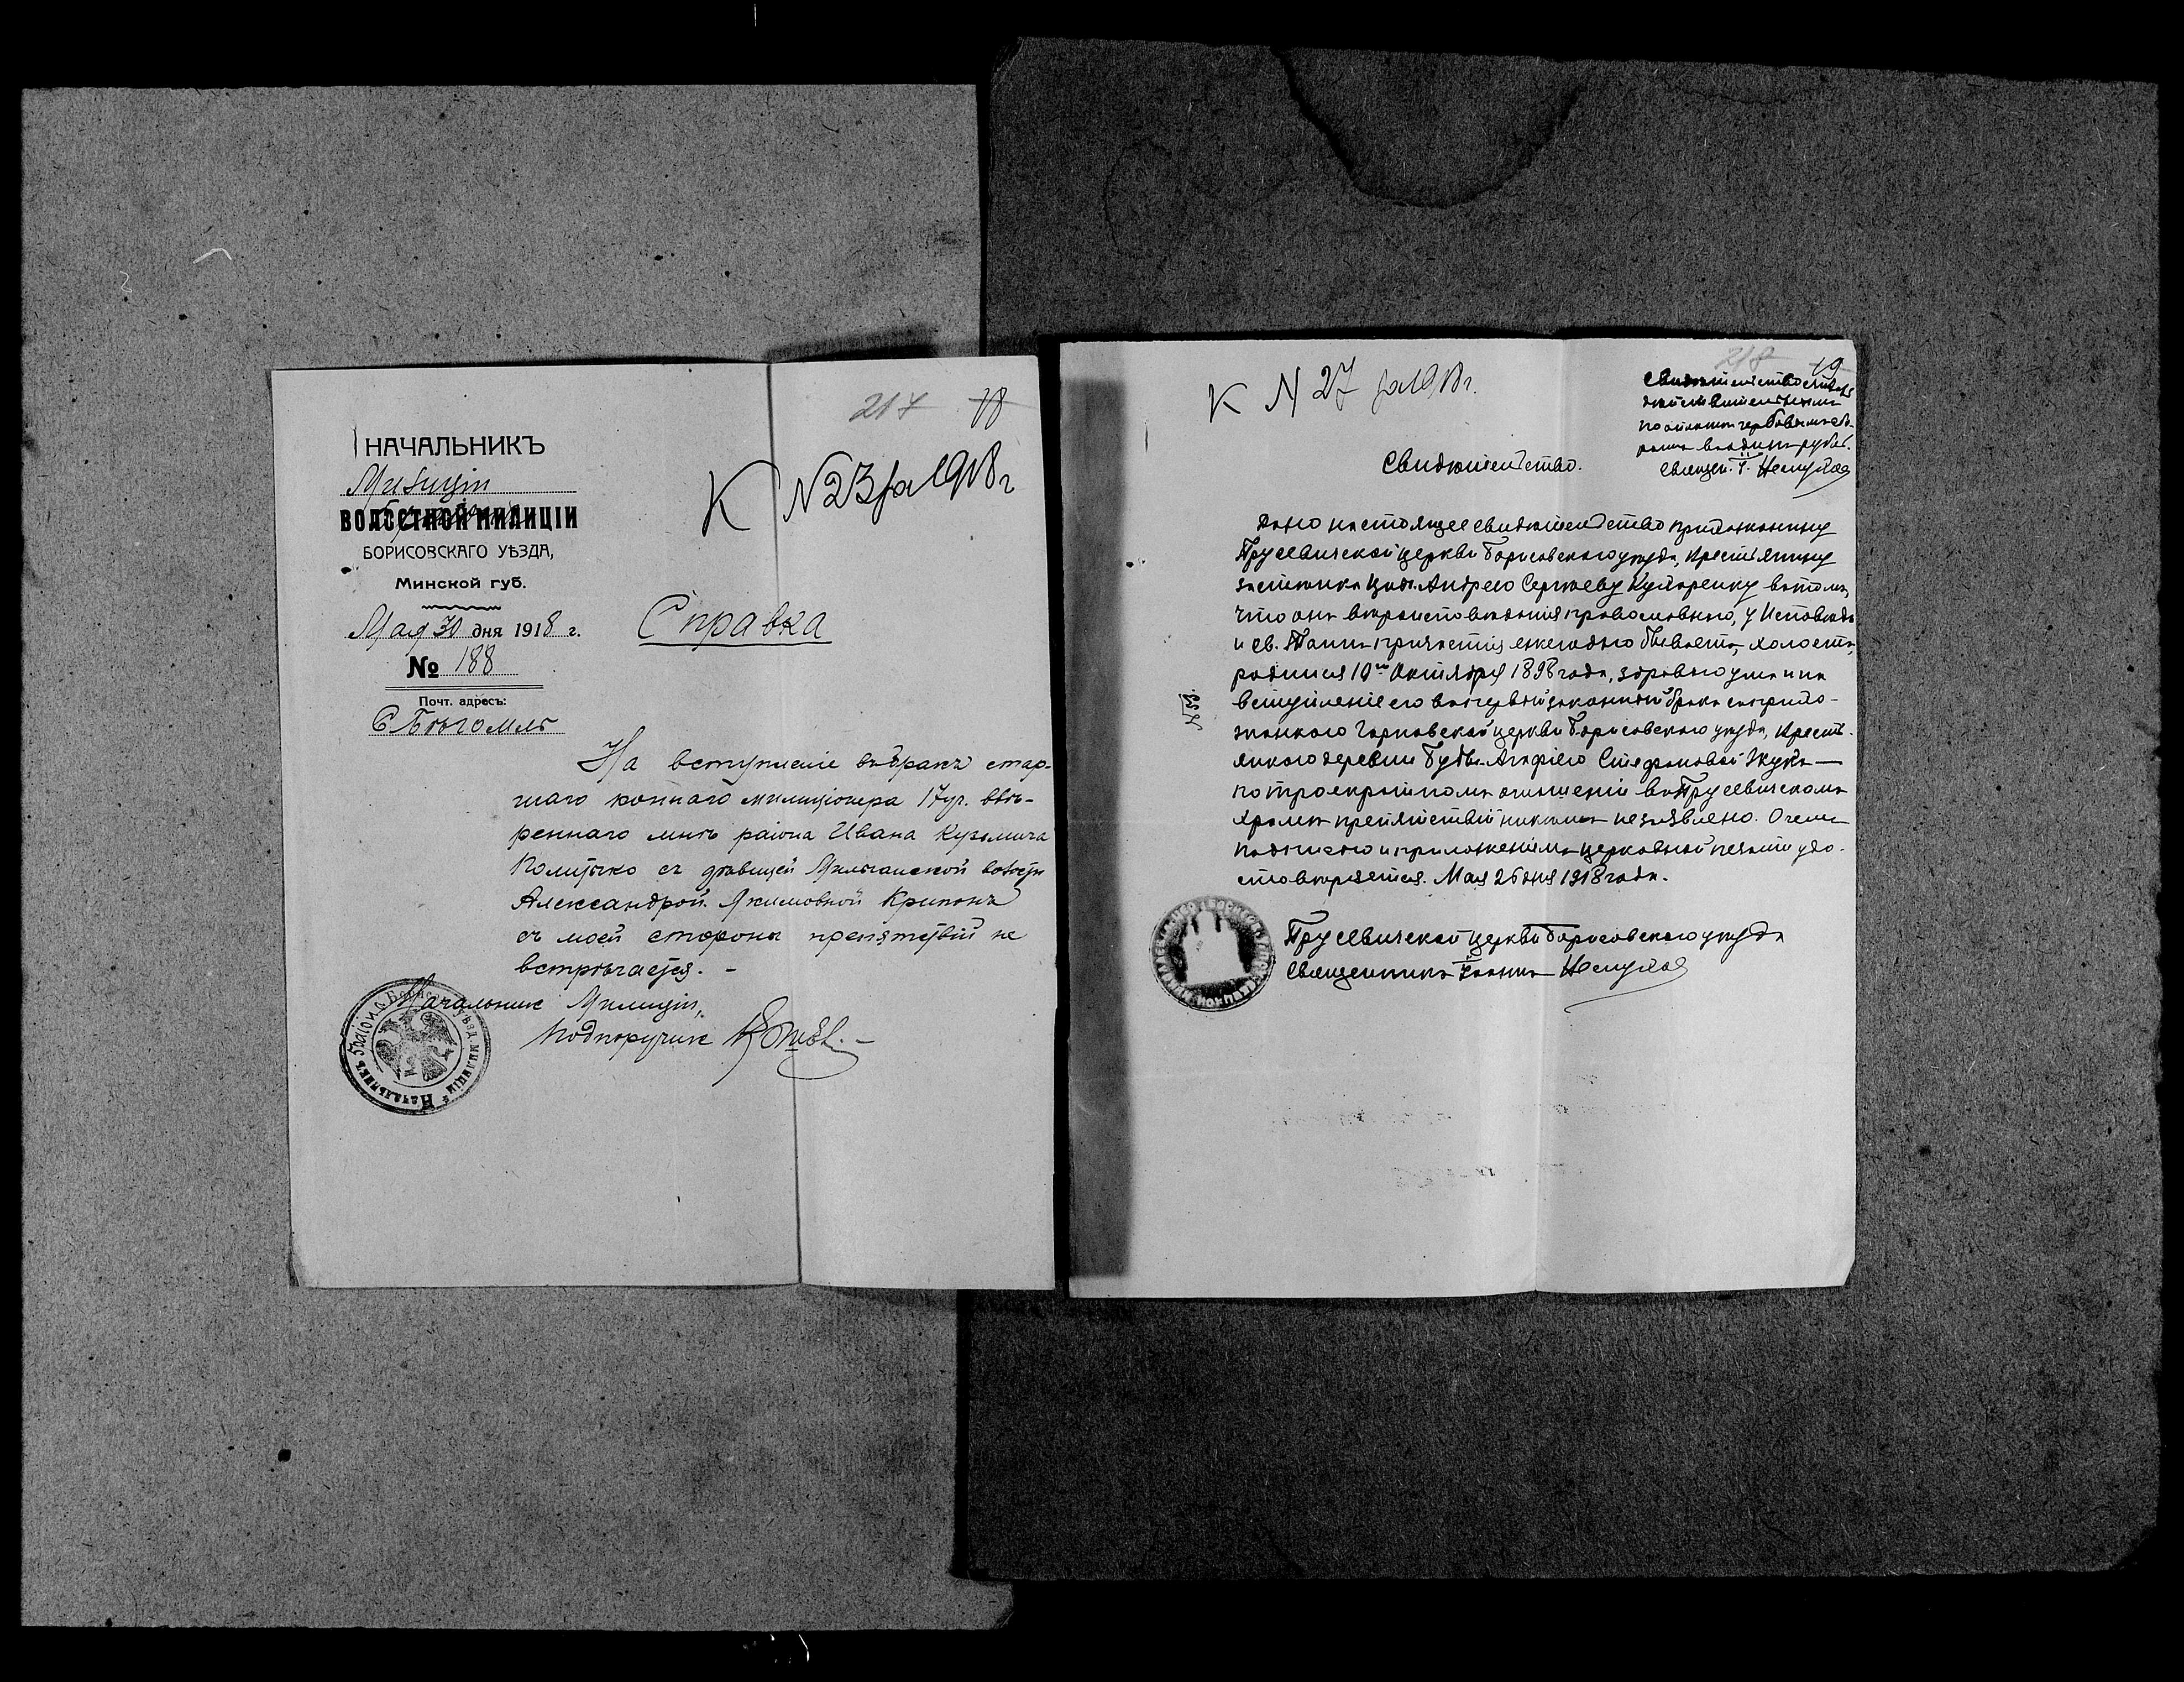 217 18
НАЧАЛЬНИКЪ
Милиціи
ВОЛОСТНОЙ МИЛИЦІИ
БОРИСОВСКАГО УѢЗДА,
Минской губ.
Мая 30 дня 1918 г.
№ 188
Почт. адресъ:
С. Бѣгомль
К N 23 за 1918 г
Справка
На вступленіе въ бракъ стар-
шаго коннаго милиціонера 17 уч. ввѣ-
реннаго мнѣ района Ивана Кузьмича
съ дѣвицей Мильчанской волости
Александрой Якимовной
съ моей стороны препятствій не
встрѣчается. -
Начальник Милиціи,
Подпоручик
Начальникъ 5 района Борис. уѣзд. милиціи
218 19
К N 27 за 1918 г.
Свидѣтельство
по оплатѣ гербовымъ сбо-
ромъ въ одинъ рубль.
Священ. І.
Свидѣтельство.
Дано настоящее свидѣтельство прихожанину
Прусевичской церкви Борисовского уѣзда, крестьянину
застѣнка Андрею Сергѣеву Кухаренку въ томъ,
что онъ вѣроисповѣданія православного, у Исповѣди
и св. Таинъ причастія ежегодно бываетъ, холостъ,
родился 10го Октября 1898 года, здравого ума и на
вступленіе его въ первый законный бракъ съ прихо-
жанкою церкви Борисовского уѣзда, кресть-
янкою деревни Буды Агафіею Стефановой Жукъ —
по троекратномъ оглашеніи въ Прусевичскомъ
храмѣ препятствій никакихъ не заявлено. О чемъ
подписью и приложеніемъ церковной печати удо-
стовѣряется. Мая 26 дня 1918 года.
N 59.
Прусевичской церкви Борисовского уѣзда
Священникъ Іоаннъ